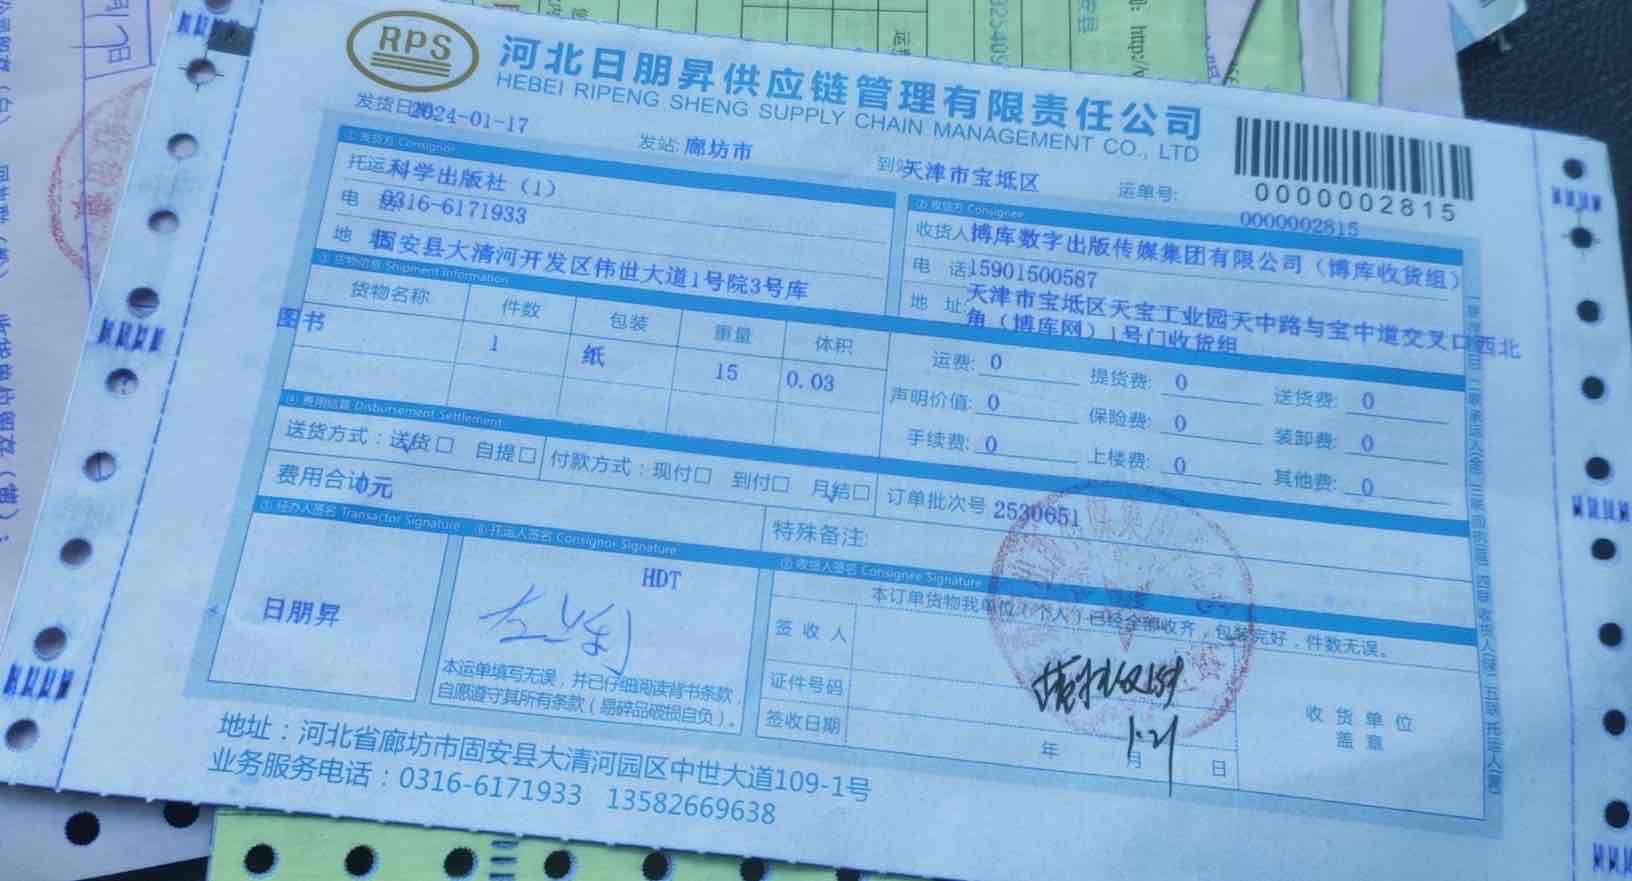 RPS
河北日朋昇供应链管理有限责任公司
HEBEI RIPENG SHENG SUPPLY CHAIN MANAGEMENT CO., LTD
发货日 2024-01-17
发站: 廊坊市
到站 天津市宝坻区
运单号:
0000002815
0000002815
① 发货方 Consignor
托运 科学出版社 (1)
电 0316-6171933
地 固安县大清河开发区伟世大道1号院3号库
② 收货方 Consignee
收货人 博库数字出版传媒集团有限公司 (博库收货组)
电 话 15901500587
地 址: 天津市宝坻区天宝工业园天中路与宝中道交叉口西北
角 (博库网) 1号门收货组
③ 货物信息 Shipment Information
货物名称 件数 包装 重量 体积
图书 1 纸 15 0.03
运费: 0 提货费: 0 送货费: 0
声明价值: 0 保险费: 0 装卸费: 0
手续费: 0 上楼费: 0 其他费: 0
④ 费用结算 Disbursement Settlement
送货方式:送货□ 自提□ 付款方式:现付□ 到付□ 月结□ 订单批次号 2530651
费用合计 0元
特殊备注:
经办人签名 Transactor Signature
⑥ 托运人签名 Consignor Signature
收货人签名 Consignee Signature
日朋昇
HDT
本运单填写无误,并已仔细阅读背书条款,
自愿遵守其所有条款(易碎品破损自负)。
本订单货物我单位(个人)已经全部收齐,包装完好,件数无误。
签 收 人
证件号码
签收日期
1.21
年 月 日
收 货 单 位
盖 章
地址:河北省廊坊市固安县大清河园区中世大道109-1号
业务服务电话:0316-6171933 13582669638